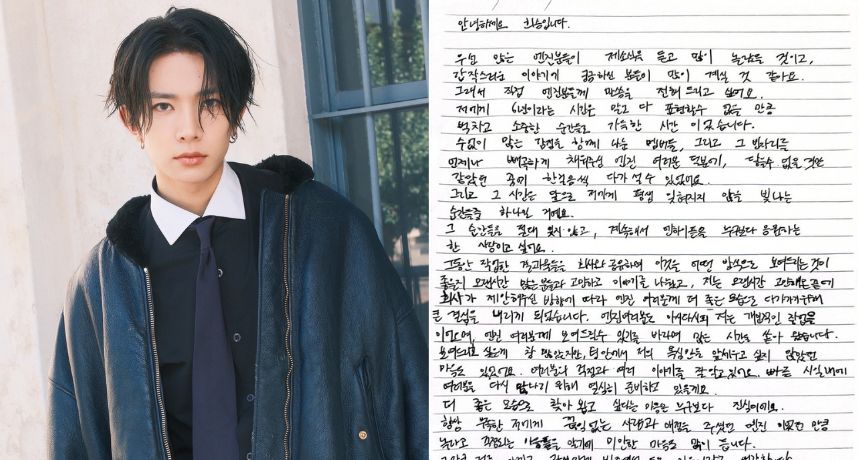 안녕하세요 희승입니다.
우선 많은 엔진분들이 제소식을 듣고 많이 놀랐을 것이고,
갑작스러운 이야기에 궁금하신 분들이 많이 계실 것 같아요.
그래서 직접 엔진분들께 말씀을 전해 드리고 싶어요.
저에게 6년이라는 시간은 말로 다 표현할수 없을 만큼
벅차고 소중한 순간들로 가득한 시간 이었습니다.
수없이 많은 감정을 함께 나눈 멤버들, 그리고 그 빈자리를
언제나 빼곡하게 채워주신 엔진 여러분 덕분에, 닿을수 없을 것만
같았던 꿈에 한걸음씩 다가설 수 있었어요.
그리고 그 시간은 앞으로 저에게 평생 잊혀지지 않을 빛나는
순간들중 하나일 거예요.
그 순간들을 절대 잊지 않고, 계속해서 엔하이픈을 누구보다 응원하는
한 사람이고 싶어요.
그동안 작업한 결과물들을 회사와 공유하며 이것을 어떤 방식으로 보여드리는것이
좋을지 오랜시간 많은 분들과 고민하고 이야기를 나눴고, 저는 오랜시간 고민해온 끝에
회사가 제안해주신 방향에 따라 엔진 여러분께 더 좋은 모습으로 다가가기위해
큰 결심을 내리게 되었습니다. 엔진여러분도 아시다시피 저는 개인적인 작업을
이어오며, 엔진 여러분께 보여드릴수 있기를 바라며 많은 시간을 쏟아 왔습니다.
보여드리고 싶은게 참 많았지만, 팀 안에서 저의 욕심만을 앞세우고 싶지 않았던
마음도 있었어요. 여러분의 걱정과 여러 이야기를 잘 알고있어요. 빠른 시일내에
여러분을 다시 만나기 위해 열심히 준비하고 있을게요.
더 좋은 모습으로 찾아 뵙고 싶다는 마음은 누구보다 진심이에요.
항상 부족한 저에게 끊임 없는 사랑과 애정을 주셨던 엔진 이었던 만큼
놀라고 걱정되는 마음들을 알기에 미안한 마음도 많이 듭니다.